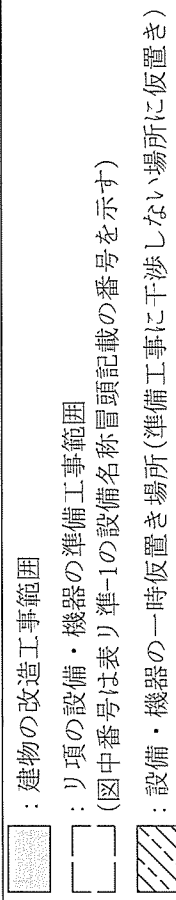 ：建物の改造工事範囲
：リ項の設備・機器の準備工事範囲
(図中番号は表リ準-1の設備名称冒頭記載の番号を示す)
：設備・機器の一時仮置き場所(準備工事に干渉しない場所に仮置き)